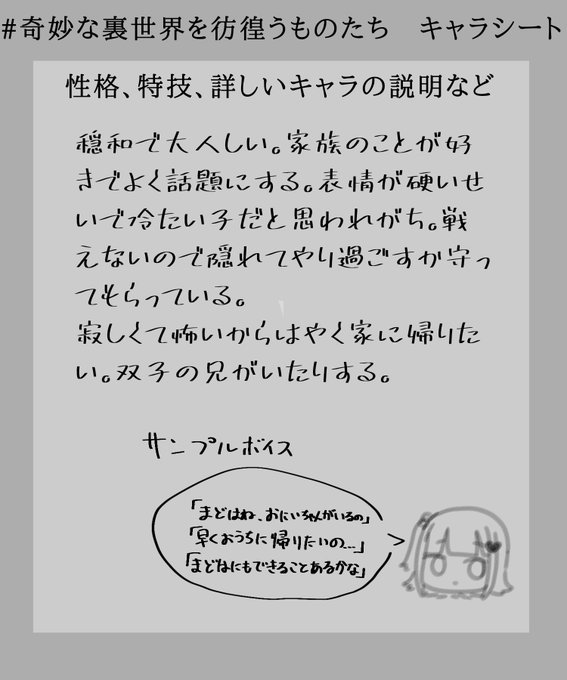 #奇妙な裏世界を彷徨うものたち　キャラシート
性格、特技、詳しいキャラの説明など
穏和で大人しい。家族のことが好
きでよく話題にする。表情が硬いせ
いで冷たい子だと思われがち。戦
えないので隠れてやり過ごすか守っ
てもらっている。
寂しくて怖いからはやく家に帰りた
い。双子の兄がいたりする。
サンプルボイス
「まどはね、おにいちゃんがいるの」
「早くおうちに帰りたいの…」
「まどなにもできることあるかな」